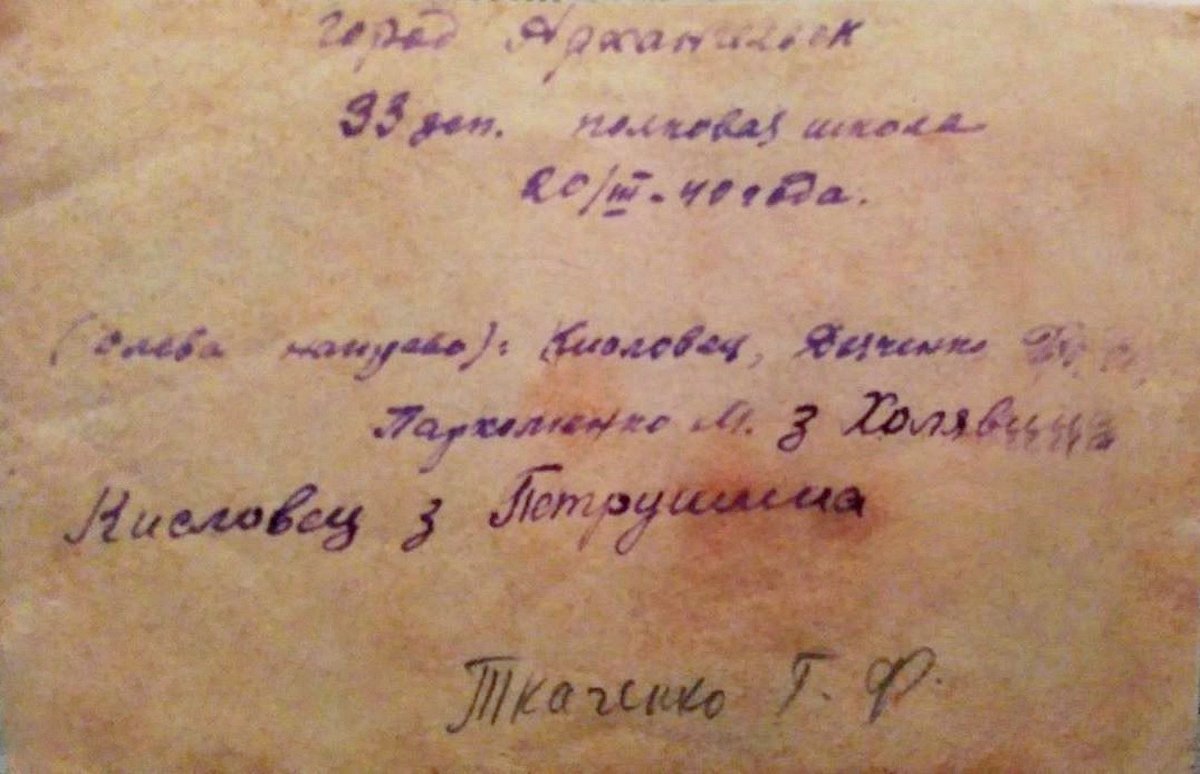 город Архангельск
33 деп. полковая школа
20/III-40 года.
(слева направо): Кисловец, Дяченко
Пархоменко М. з Холявина
Кисловец з Петрушина
Ткаченко Г. Ф.